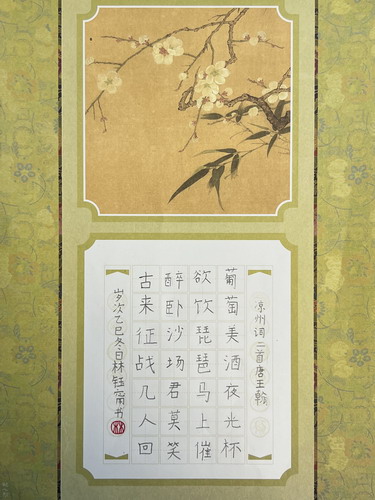 凉州词二首唐王翰
葡萄美酒夜光杯
欲饮琵琶马上催
醉卧沙场君莫笑
古来征战几人回
岁次乙巳冬日林钰甯书